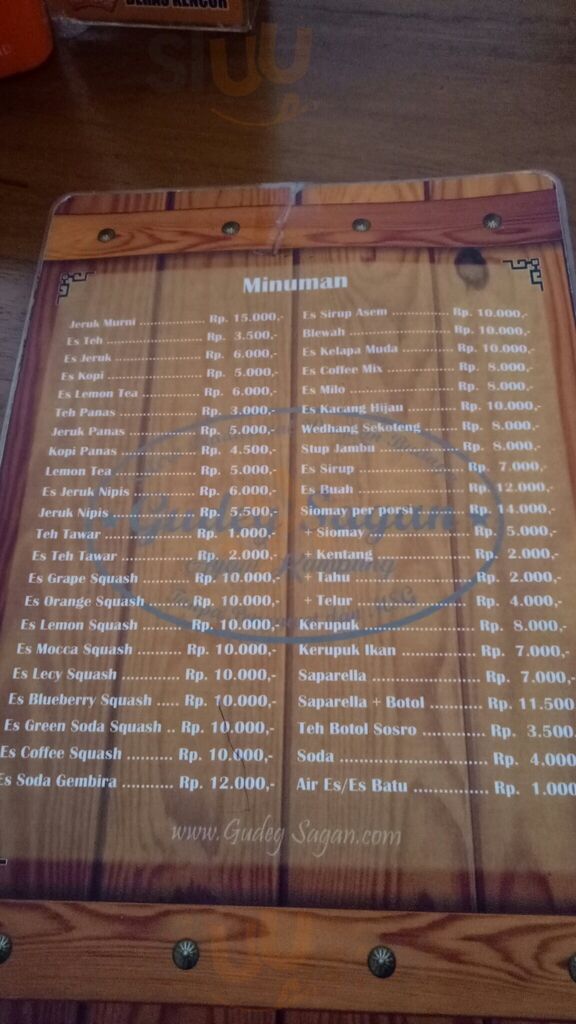 BERAS KENCUR
Minuman
Jeruk Murni ................ Rp. 15.000,-
Es Teh ........................ Rp. 3.500,-
Es Jeruk ..................... Rp. 6.000,-
Es Kopi ....................... Rp. 5.000,-
Es Lemon Tea ............. Rp. 6.000,-
Teh Panas .................. Rp. 3.000,-
Jeruk Panas ................ Rp. 5.000,-
Kopi Panas ................. Rp. 4.500,-
Lemon Tea .................. Rp. 5.000,-
Es Jeruk Nipis ............. Rp. 6.000,-
Jeruk Nipis .................. Rp. 5.500,-
Teh Tawar ................... Rp. 1.000,-
Es Teh Tawar .............. Rp. 2.000,-
Es Grape Squash ......... Rp. 10.000,-
Es Orange Squash ........ Rp. 10.000,-
Es Lemon Squash ......... Rp. 10.000,-
Es Mocca Squash .......... Rp. 10.000,-
Es Lecy Squash ............ Rp. 10.000,-
Es Blueberry Squash ..... Rp. 10.000,-
Es Green Soda Squash .. Rp. 10.000,-
Es Coffee Squash .......... Rp. 10.000,-
Es Soda Gembira ........... Rp. 12.000,-
Es Sirup Asem .............. Rp. 10.000,-
Blewah ........................ Rp. 10.000,-
Es Kelapa Muda ............ Rp. 10.000,-
Es Coffee Mix ............... Rp. 8.000,-
Es Milo ........................ Rp. 8.000,-
Es Kacang Hijau ............ Rp. 10.000,-
Wedhang Sekoteng ........ Rp. 8.000,-
Stup Jambu .................. Rp. 8.000,-
Es Sirup ....................... Rp. 7.000,-
Es Buah ....................... Rp. 12.000,-
Siomay per porsi ........... Rp. 14.000,-
+ Siomay ...................... Rp. 5.000,-
+ Kentang .................... Rp. 2.000,-
+ Tahu ......................... Rp. 2.000,-
+ Telur ......................... Rp. 4.000,-
Kerupuk ....................... Rp. 8.000,-
Kerupuk Ikan ................ Rp. 7.000,-
Saparella ...................... Rp. 7.000,-
Saparella + Botol ........... Rp. 11.500
Teh Botol Sosro ............. Rp. 3.500
Soda ............................ Rp. 4.000
Air Es/Es Batu ............... Rp. 1.000
Gudeg Sagan
Ayam Kampung
MSG
www.Gudeg Sagan.com